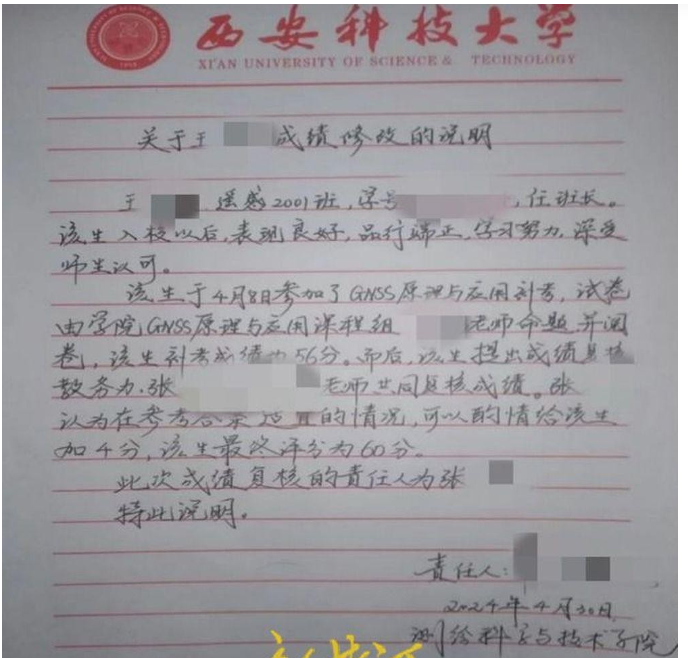 西安科技大学
XI'AN UNIVERSITY OF SCIENCE & TECHNOLOGY
关于王 成绩修改的说明
王 遥感2001班,学号 ,任班长。
该生入校以后,表现良好,品行端正,学习努力,深受
师生认可。
该生于4月8日参加了GNSS原理与应用补考,试卷
由学院GNSS原理与应用课程组 老师命题并阅
卷,该生补考成绩为56分。而后,该生提出成绩复核
教务办.张 老师共同复核成绩。张
认为在参考答案 的情况,可以酌情给该生
加4分,该生最终评分为60分。
此次成绩复核的责任人为张
特此说明。
责任人:
2024年4月30日
测绘科学与技术学院